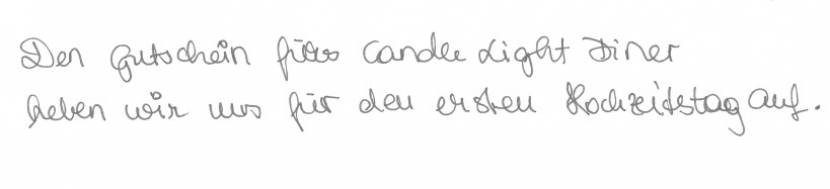 Den Gutschein fürs Candle Light Diner
heben wir uns für den ersten Hochzeitstag auf.